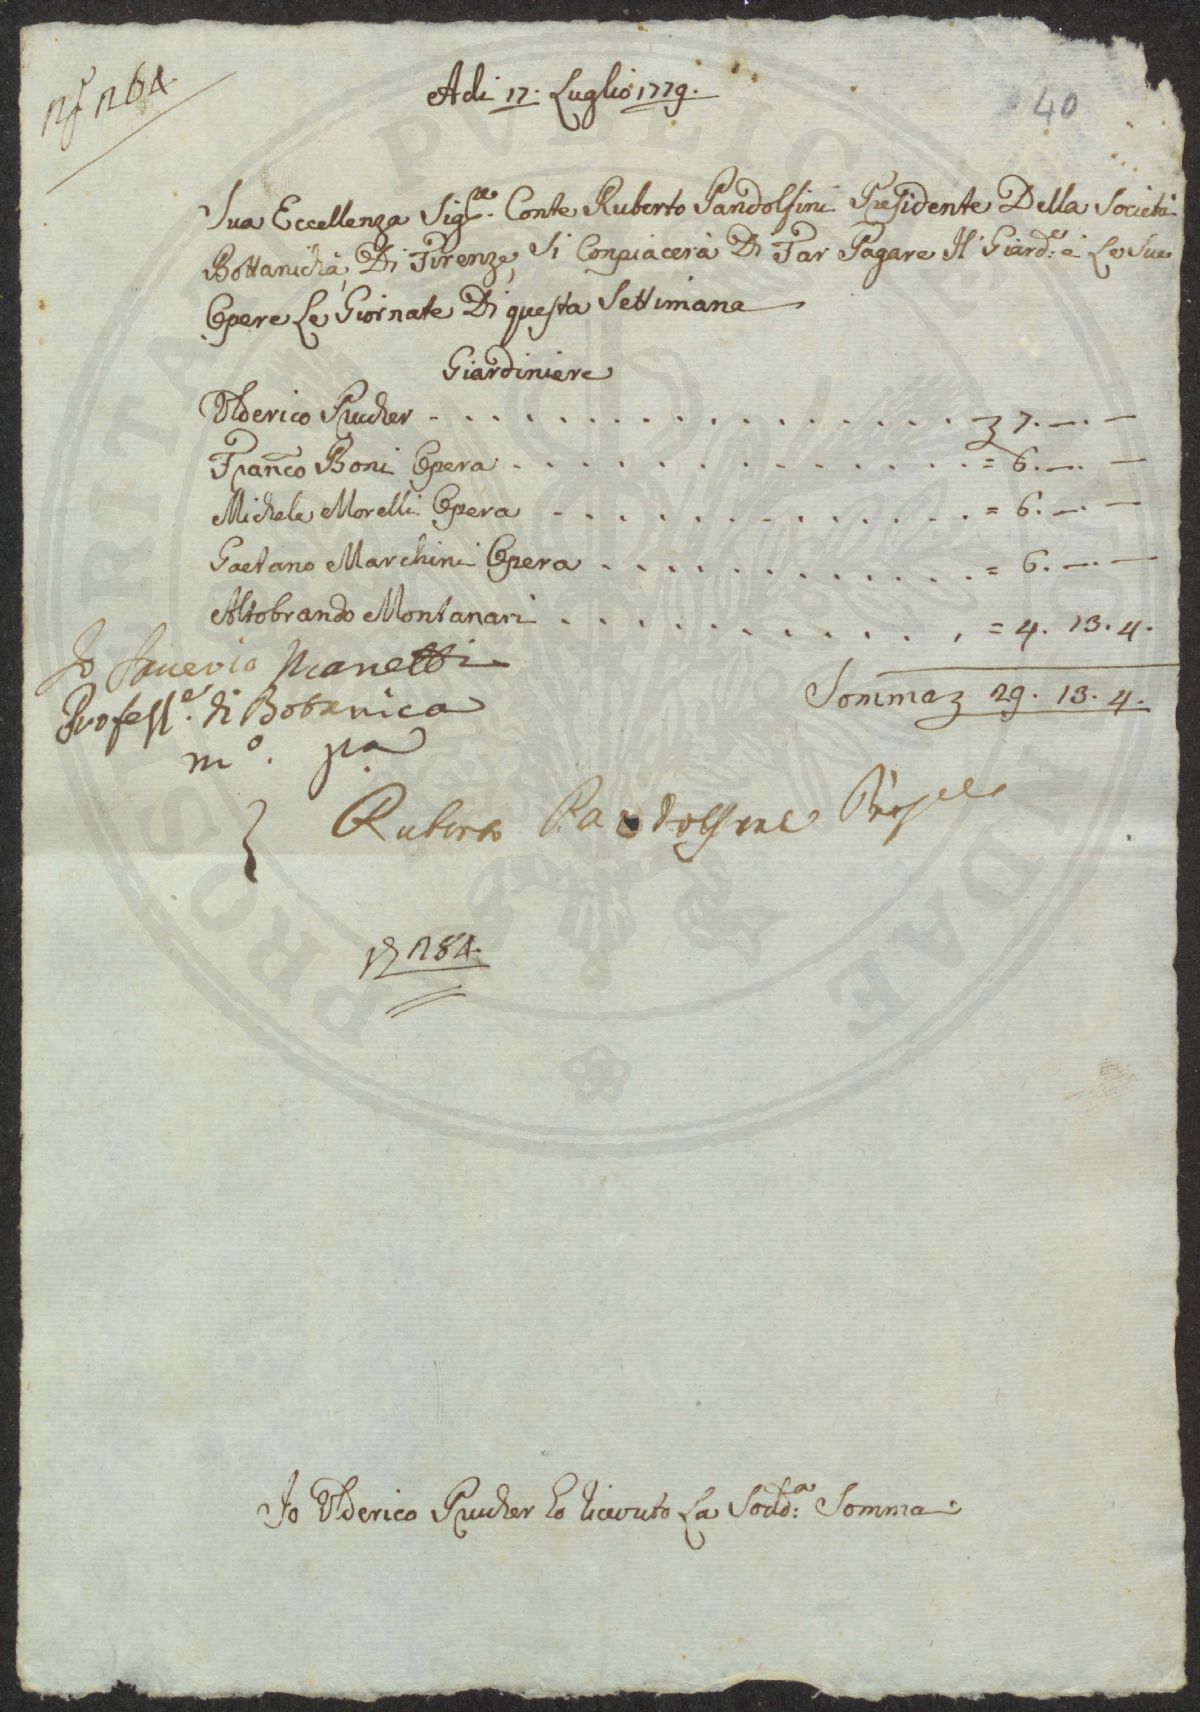 N° 264
Adi 17. Luglio 1779.
40
Sua Eccellenza Sig.re Conte Ruberto Pandolfini Presidente Della Società
Bottanicha, Di Firenze, Si Conpiacerà Di Far Pagare Il Giard.e è Le Sue
Opere Le Giornate Di questa Settimana
Giardiniere
Ulderico Prucher - . . . . . . . . . . . . . . . . £ 7. —. —
Franco Boni Opera . . . . . . . . . . . . . . = 6. —. —
Michele Morelli Opera - . . . . . . . . . . . . = 6. —. —
Gaetano Marchini Opera . . . . . . . . . . . . = 6. —. —
Altobrando Montanari . . . . . . . . . . . . , = 4. 13. 4.
Somma £ 29. 13. 4.
Io Saverio Manetti
Profess.e di Botanica
m.o p.a
Ruberto Pandolfini
284.
Io Ulderico Prucher ho ricevuto La Sodd.a Somma
PROSPERITATI PUBLICAE